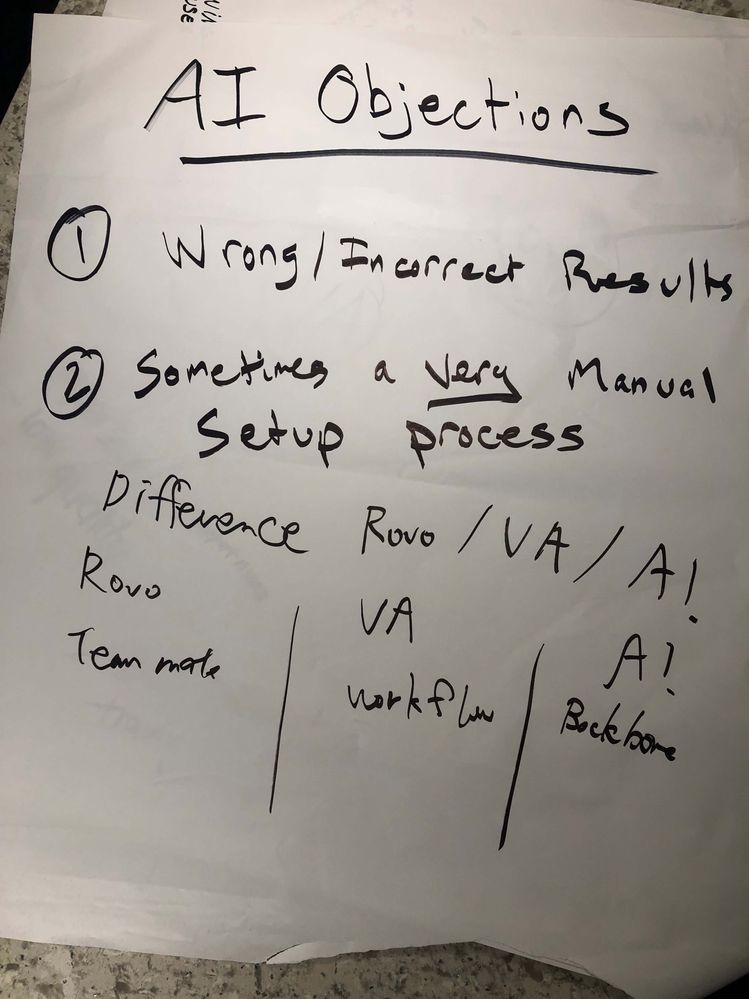 AI Objections
① Wrong/Incorrect Results
② Sometimes a very Manual
Setup process
Difference Rovo / VA / A!
Rovo
VA
A!
Team mate
workflow
Backbone